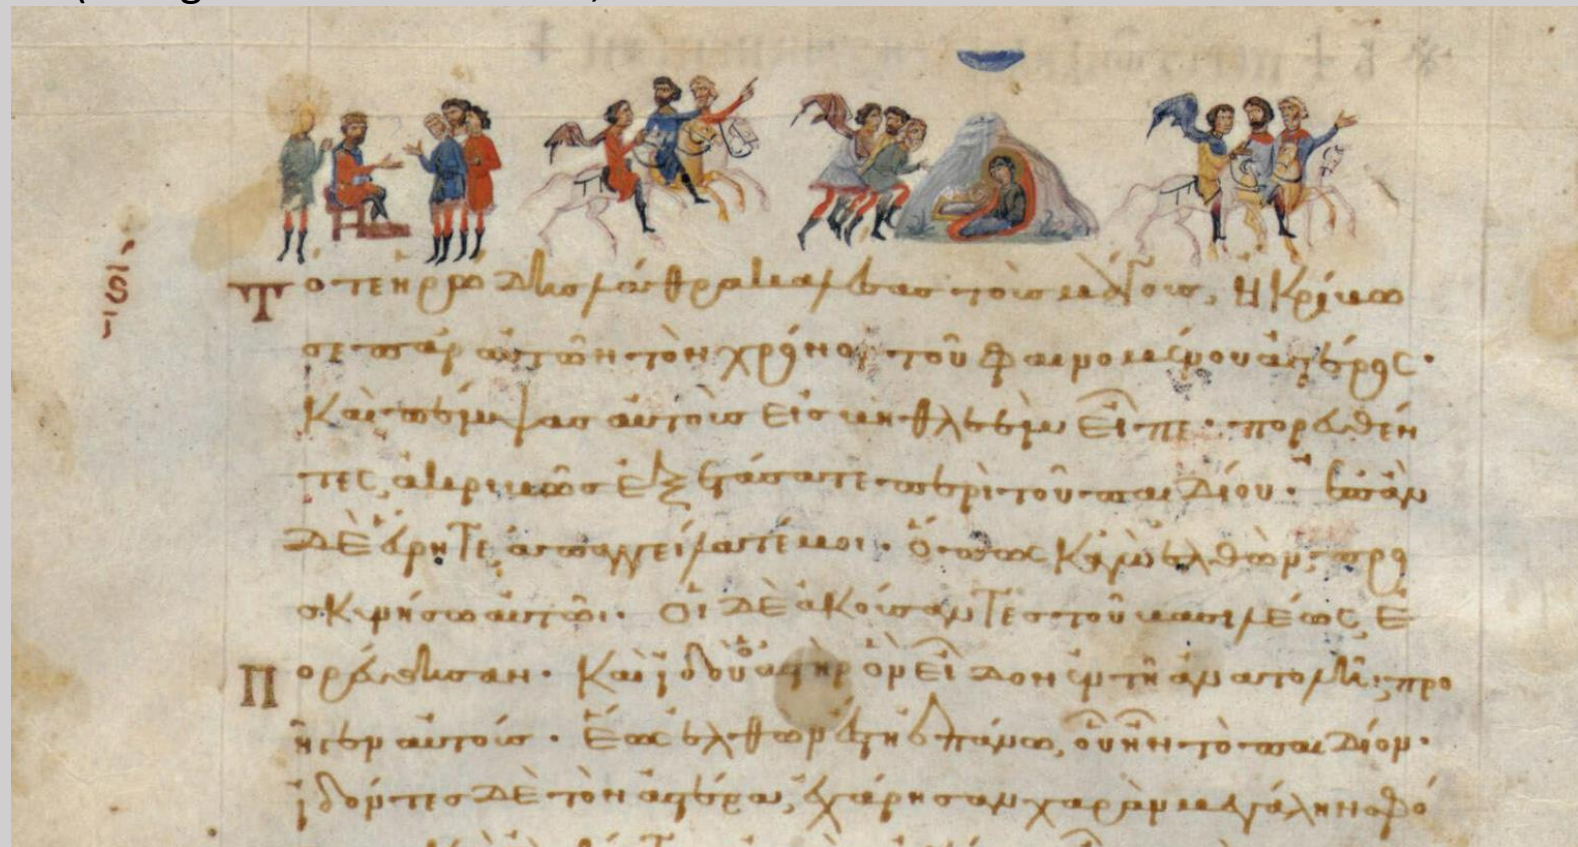 Τότε ἡρώδης λάθρα καλέσας τοὺς μάγους, ἠκρίβω
σε παρ αὐτῶν τὸν χρόνον τοῦ φαινομένου ἀστέρος·
Καὶ πέμψας αὐτοὺς εἰς βηθλεὲμ εἶπε· πορευθέν
τες, ἀκριβῶς ἐξετάσατε περὶ τοῦ παιδίου· ἐπὰν
δὲ εὕρητε, ἀπαγγείλατέ μοι· ὅπως κἀγὼ ἐλθὼν, προσ
κυνήσω αὐτῶι· Οἱ δὲ ἀκούσαντες τοῦ βασιλέως, ἐ
Πορεύθησαν· Καὶ ἰδοὺ ὁ ἀστὴρ ὃν εἶδον ἐν τῆ ἀνατολῆ, προ
ῆγεν αὐτούς· Ἕως ἐλθὼν ἔστη ἐπάνω, οὗ ἦν τὸ παιδίον·
ἰδόντες δὲ τὸν ἀστέρα, ἐχάρησαν χαρὰν μεγάλην σφό